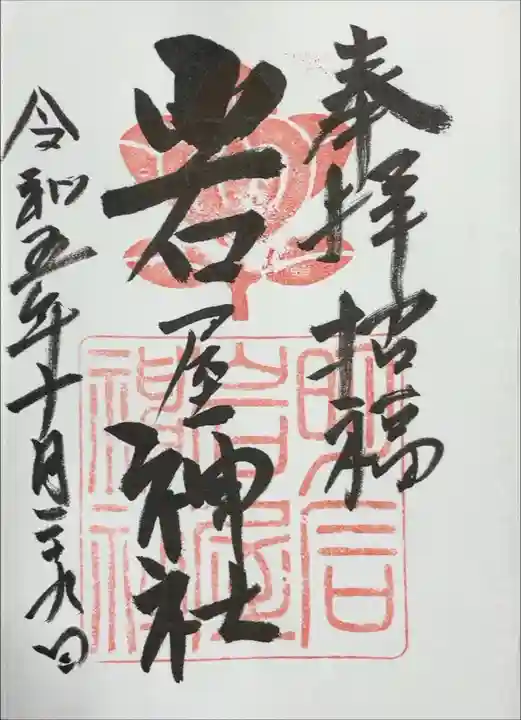 奉拝 招福
岩屋神社
令和五年十月二十九日
明石岩屋神社